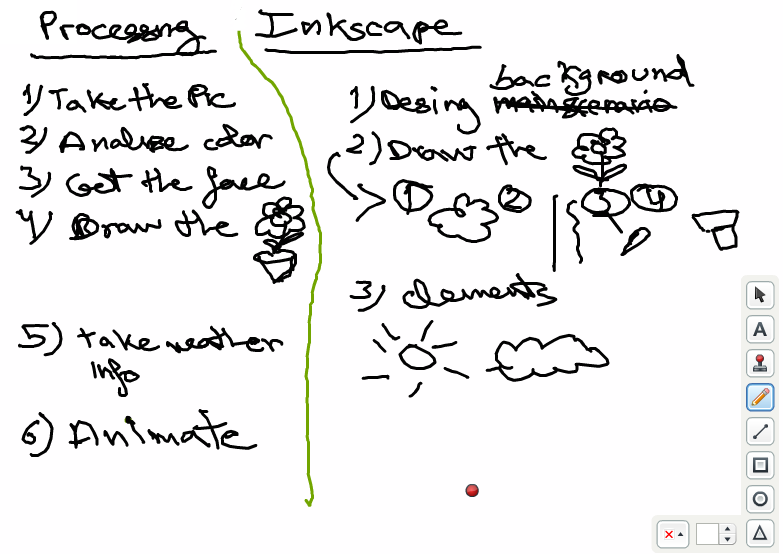 Processing
1) Take the Pic
2) Analize color
3) Get the face
4) Draw the
5) take weather
info
6) Animate
Inkscape
background
1) Desing
2) Draw the
1 2 3 4
3) elements
A